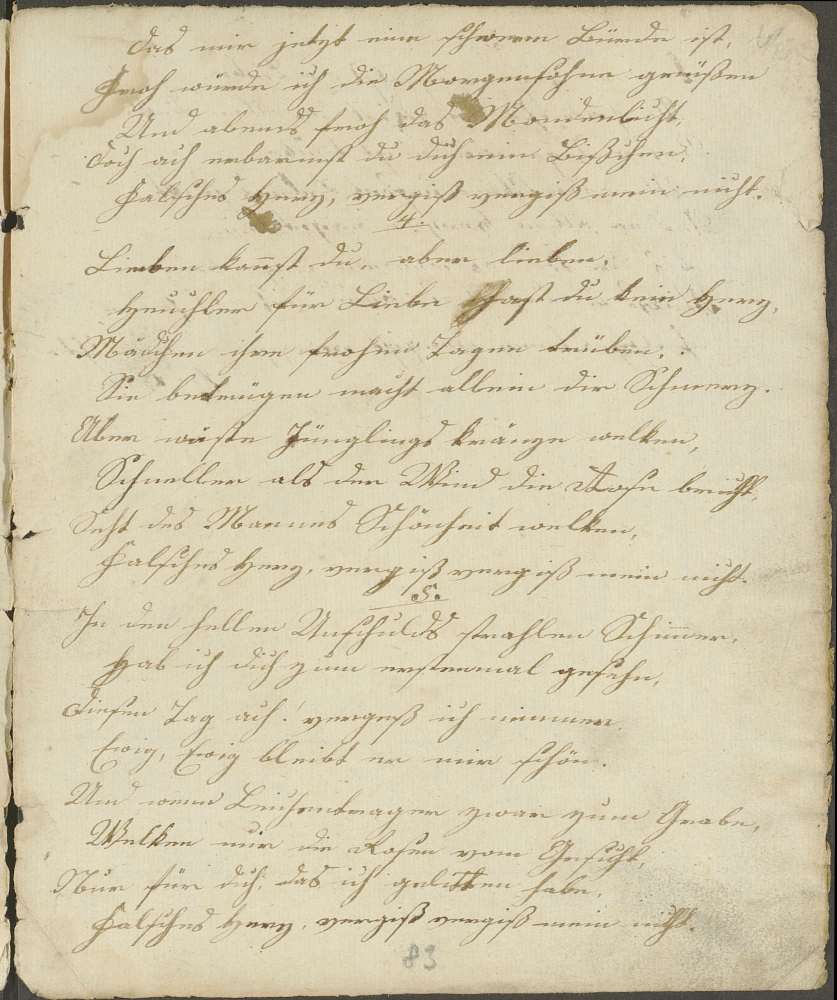 Das mir jetzt eine schwere Bürde ist,
Froh würde ich die Morgensohne grüßen
Und abends froh das Mondenlicht,
Doch ach erbarmst du dich ein Bißchen,
Falsches Herz, vergiß vergiß mein nicht.
4.
Lieben kanst du, aber lieben,
Heuchler für Liebe hast du kein Herz,
Mädchen ihre frohen Tagen trüben,
Sie betrügen macht allein dir Schmerz.
Aber wüste Jünglings kränze welken,
Schneller als der Wind die Rose bricht,
Seht des Mannes Schönheit welken,
Falsches Herz, vergiß vergiß mein nicht.
5.
In den hellen Unschulds strahlen Schimmer,
Hab ich dich zum erstenmal gesehn,
Diesen Tag ach! vergeß ich nimmer
Ewig, Ewig bleibt er mir schön.
Und wenn Leichentrager zwar zum Grabe,
Welken mir die Rosen vom Gesicht,
Nur für dich, das ich gelitten habe,
Falsches Herz, vergiß vergiß mein nicht.
83